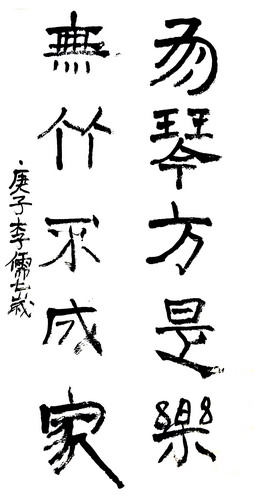 有琴方是樂
無竹不成家
庚子李儒七歲